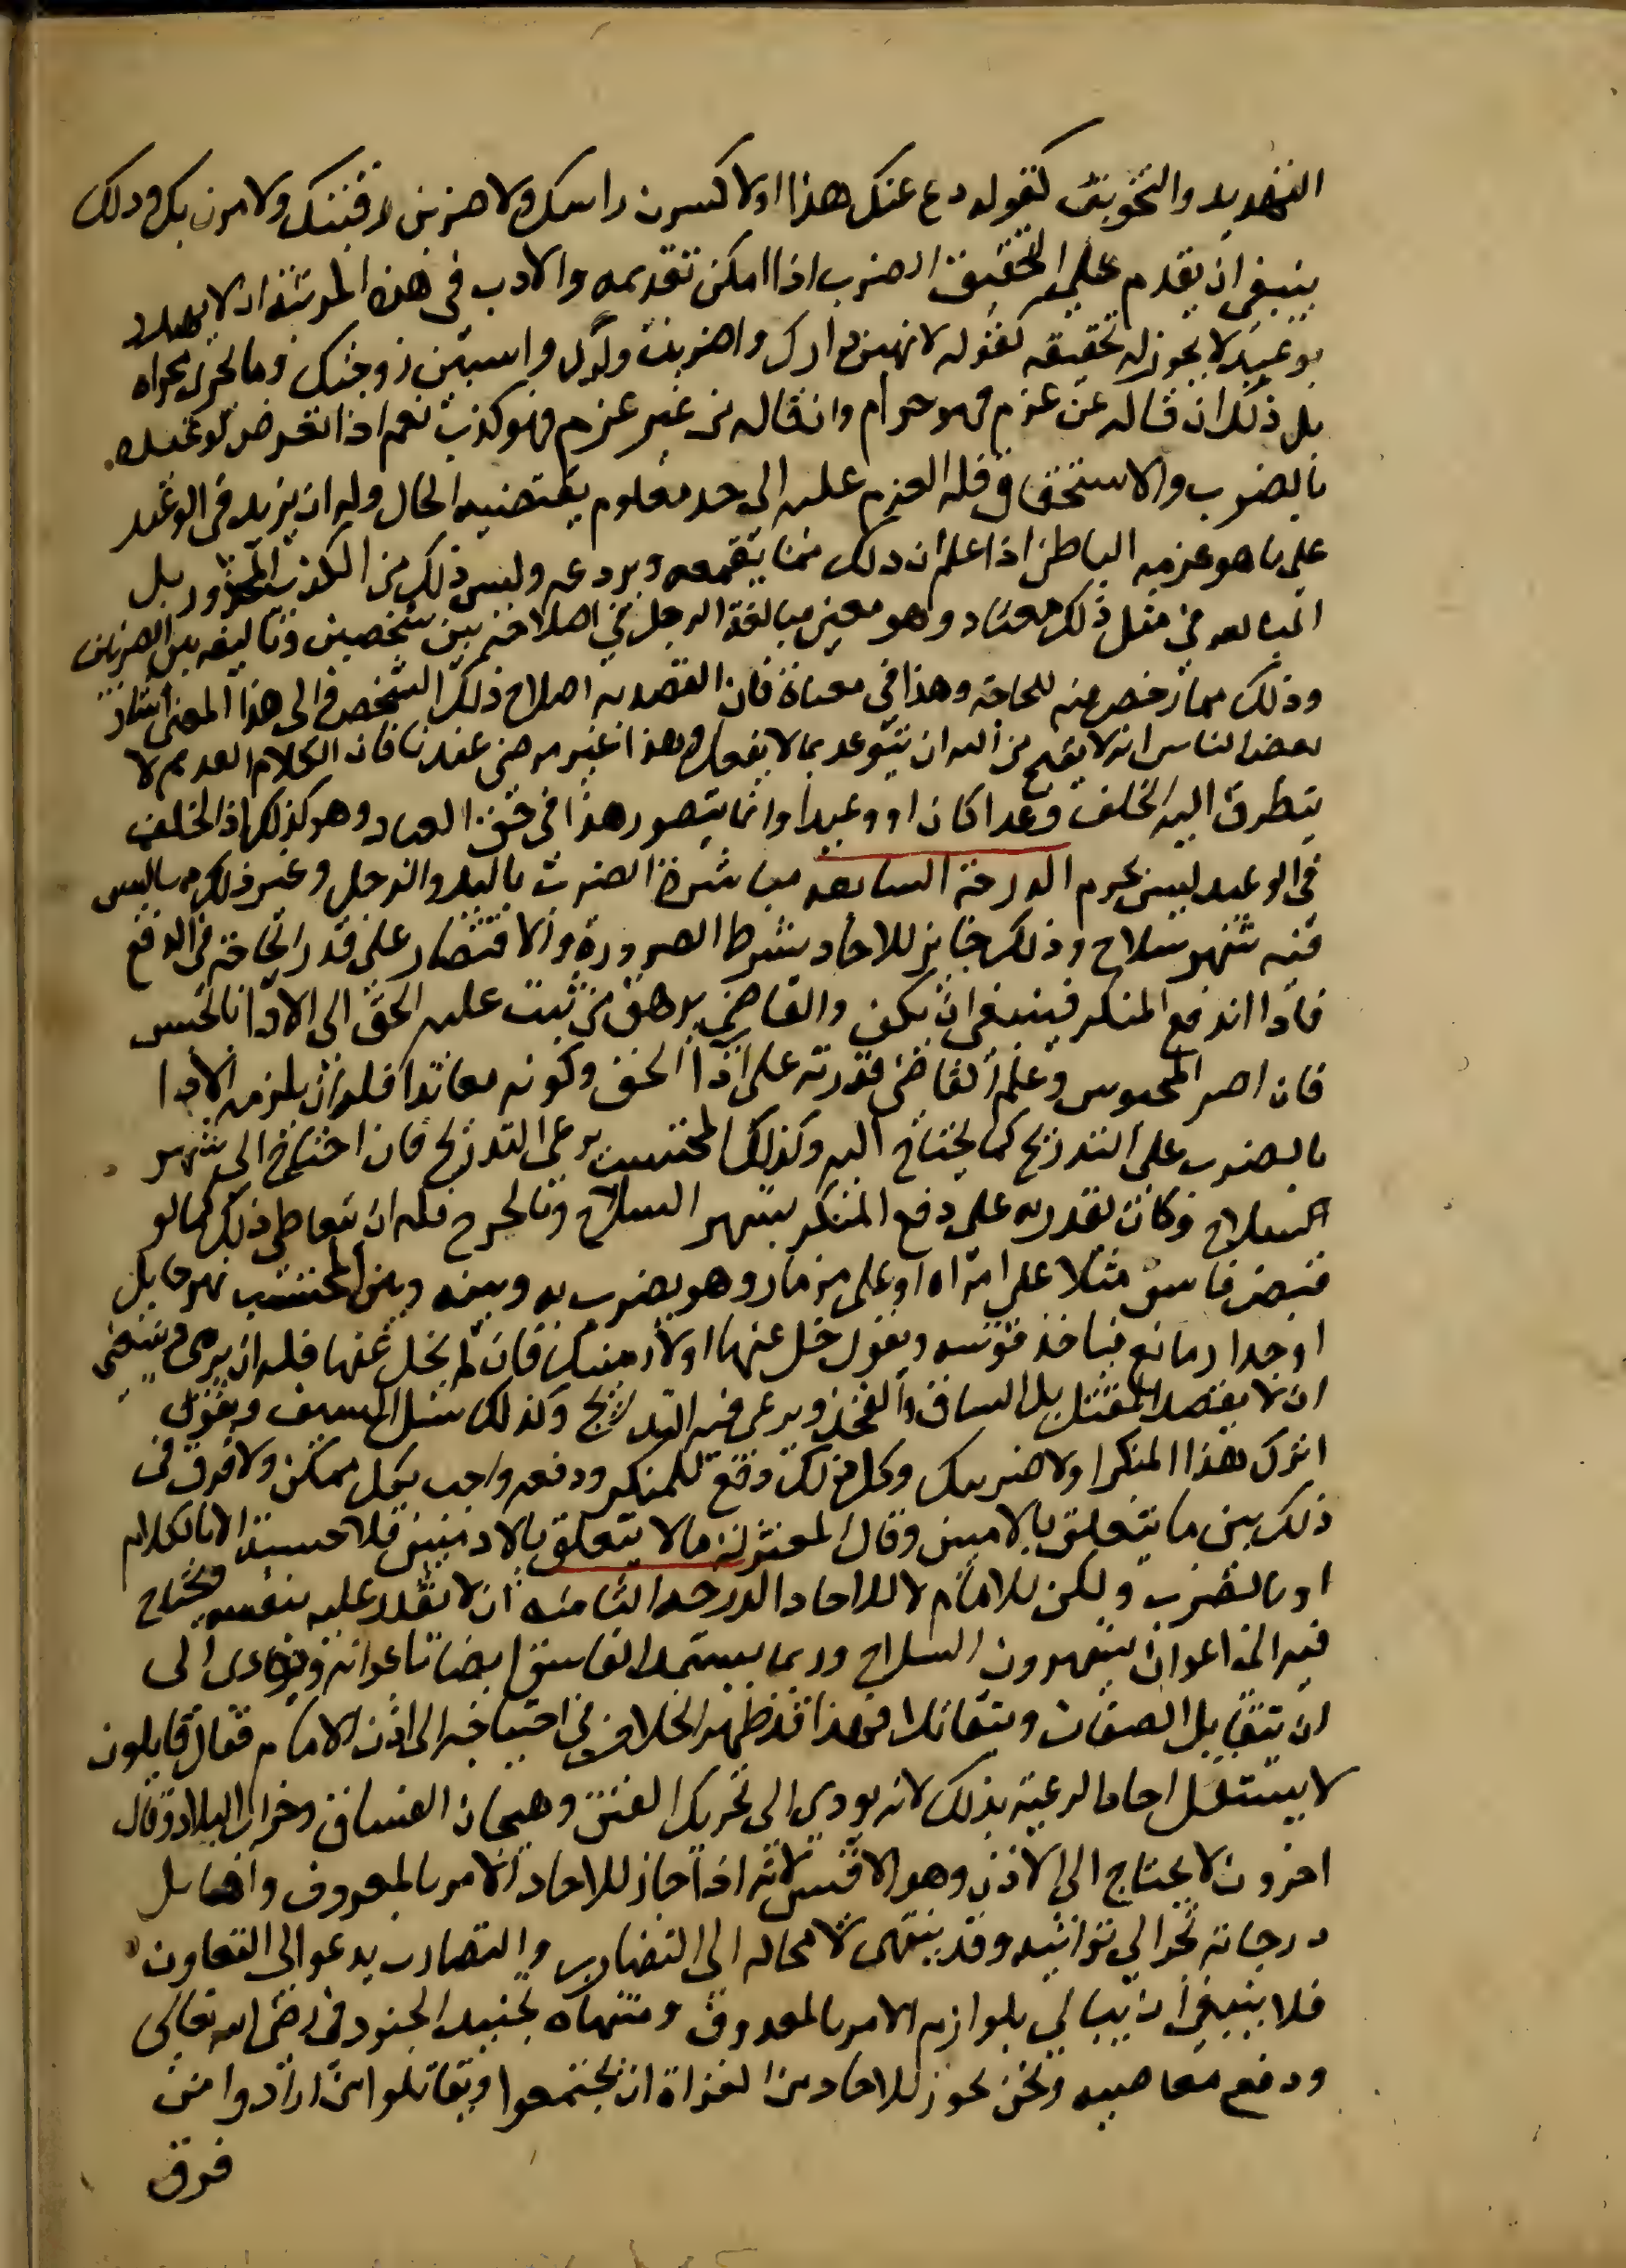 التهديد والتخويف كقوله دع عنك هذا او لاكسرن راسك ولاضربن رقبتك ولامرن بك وذلك
ينبغي ان يقدم على تحقيق الضرب اذا امكن تقديمه والادب في هذه المرتبة ان لا يهدد
بوعيد لا يجوز له تحقيقه كقوله لانهبن دارك واضربن ولدك واسبين زوجتك وما يجري مجراه
بل ذلك ان قاله عن عزم فهو حرام وان قاله من غير عزم فهو كذب نعم اذا تعرض لوعيده
بالضرب والاستخفاف فله العزم عليه الى حد معلوم يقتضيه الحال وله ان يزيد في الوعيد
على ما هو عزمه الباطن اذا علم ان ذلك مما يقمعه ويردعه وليس ذلك من الكذب المحذور بل
المبالغة في مثل ذلك معتاد وهو معنى مبالغة الرجل في اصلاحه بين شخصين وتاليفه بين الضرتين
وذلك مما رخص فيه للحاجة وهذا في معناه فان القصد به اصلاح ذلك الشخص والى هذا المعنى اشار
بعض الناس انه لا يقبح من الله ان يتوعد بما لا يفعل وهذا غير مرضي عندنا فان الكلام القديم لا
يتطرق اليه الخلف وعدا كان او وعيدا وانما يتصور هذا في حق العباد وهو كذلك اذ الخلف
في الوعيد ليس بحرام الدرجة السابعة مباشرة الضرب باليد والرجل وغير ذلك مما ليس
فيه شهر سلاح وذلك جايز للاحاد بشرط الضرورة والاقتصار على قدر الحاجة في الدفع
فاذا اندفع المنكر فينبغي ان يكف والقاضي يرهق من ثبت عليه الحق الى الادا بالحبس
فان اصر المحبوس وعلم القاضي قدرته على ادا الحق وكونه معاندا فله ان يلزمه الادا
بالضرب على التدريج كما يحتاج اليه وكذلك المحتسب يرعى التدريج فان احتاج الى شهر
السلاح وكان يقدر على دفع المنكر بشهر السلاح وبالجرح فله ان يتعاطى ذلك كما لو
قبض فاسق مثلا على امراة او على مزمار وهو يضرب به وبينه وبين المحتسب نهر حايل
او جدار مانع فياخذ قوسه ويقول خل عنها او لارمينك فان لم يخل عنها فله ان يرمي وينبغي
ان لا يقصد المقتل بل الساق والفخذ ويرعى فيه التدريج وكذلك يسل السيف ويقول
اترك هذا المنكر او لاضربنك وكل ذلك دفع للمنكر ودفعه واجب بكل ممكن ولا فرق في
ذلك بين ما يتعلق بالاميين وقال المعتزلة ما لا يتعلق بالادميين فلا حسبة الا بالكلام
او بالضرب ولكن للامام لا للاحاد الدرجة الثامنة ان لا يقدر عليه بنفسه ويحتاج
فيه الى اعوان يشهرون السلاح وربما يستمد الفاسق ايضا باعوانه ويودى الى
ان يتقابل الصفان ويتقاتلا فهذا قد ظهر الخلاف في احتياجه الى اذن الامام فقال قايلون
لا يستقل احاد الرعية بذلك لانه يودي الى تحريك الفتن وهيجان الفساق وخراب البلاد وقال
اخرون لا يحتاج الى الاذن وهو الاقيس لانه اذا جاز للاحاد الامر بالمعروف واوايل
درجاته تجر الى ثوانيه وقد ينتهي لا محاله الى التضارب والتضارب يدعو الى التعاون
فلا ينبغي ان يبالي بلوازم الامر بالمعروف ومنتهاه تجنيد الجنود في رضى الله تعالى
ودفع معاصيه ونحن نجوز للاحاد من الغزاة ان يجتمعوا ويقاتلوا من ارادوا من
فرق